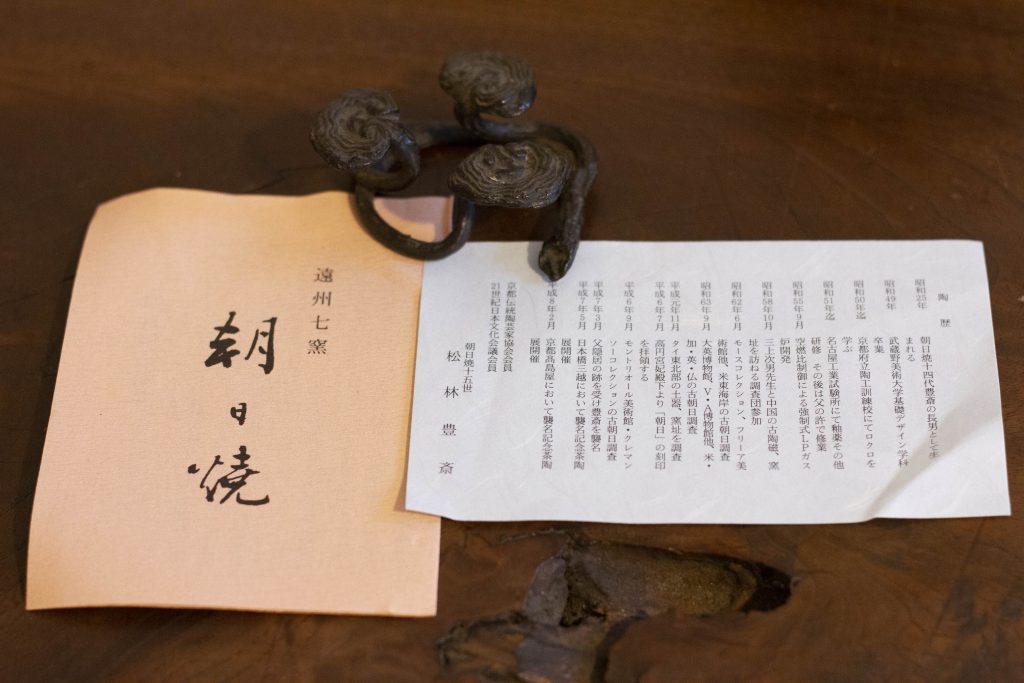 遠州七窯
朝日燒
陶歴
昭和25年 朝日焼十四代豊斎の長男として生
まれる
昭和49年 武蔵野美術大学基礎デザイン学科
卒業
昭和50年迄 京都府立陶工訓練校にてロクロを
学ぶ
昭和51年迄 名古屋工業試験所にて釉薬その他
研修 その後は父の許で修業
昭和55年9月 空燃比制御による強制式LPガス
炉開発
昭和58年10月 三上次男先生と中国の古陶磁、窯
址を訪ねる調査団参加
昭和62年6月 モースコレクション、フリーア美
術館他、米東海岸の古朝日調査
昭和63年9月 大英博物館、V・A博物館他、米・
加・英・仏の古朝日調査
平成元年11月 タイ東北部の土器、窯址を調査
平成6年7月 高円宮妃殿下より「朝日」の刻印
を拝領する
平成6年9月 モントリオール美術館・クレマン
ソーコレクションの古朝日調査
平成7年3月 父隠居の跡を受け豊斎を襲名
平成7年5月 日本橋三越において襲名記念茶陶
展開催
平成8年2月 京都髙島屋において襲名記念茶陶
展開催
京都伝統陶芸家協会会員
21世紀日本文化会議会員
朝日焼十五世
松林豊斎